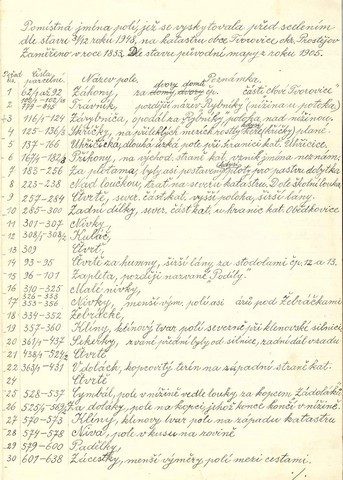 Pomístná jména polí, jež se vyskytovala před scelením
dle stavu 31/12 roku 1948, na katastru obce Tvorovice okr. Prostějov
Zaměřeno v roce 1833, Dle stavu původní mapy z roku 1905.
Pořad. No Čísla parcelní. Název pole. Poznámka.
1 62/1 až 92 Záhony, za domy, dvory čp. části Nové Tvorovice"
2 779-818 Trávník, pozdější název Rybníky (nížina u potoka)
3 116/1-124 Zavybnica, opodál za Rybníky potoka, nad nížinou.
4 125-136/3 Skřičky, na přilehlých
5 137-166 Uhřičická, dlouhá úzká pole při hranici kat. Uhřičice.
6 167/1-182/3 Příhony, na východ. straně kat. vznik jména neznám.
7 183-256 Za ploťama; byly asi postaveny ploty pro pastvu dobytka
8 223-238 Nad loučkou, trať na severu katastru. Dole školní louka
9 257-284 Čtvrtě, sever. část kat., vyšší poloha, širší lány.
10 285-300 Zadní dílky, sever. část kat. u hranic kat. Obědkovic
11 301-307 Nivky,
12 308/1-308/2 Kuláč,
13 309 Čtvrtě
14 93-95 Čtvrtě za humny, širší lány za stodolami čp. 12 a 13.
15 96-101 Zapleta, později nazvané "Podíly."
16 310-325 Malé nivky,
17 326-333 335-356 Nivky, menší vým. polí asi árů pod Žebračkami
18 334-352 Žebračké,
19 357-360 Klíny, klínový tvar polí severně při klenovské silnici
20 361/1-437 Sekerky, zvané přední byly od silnice, zadní dál vsadu
21 438/1-522/2 Čtvrtě
22 363/1-431 V dolách, kopcovitý terén na západní straně kat.
24 Čtvrtě
25 528-537 Cymbál, pole v nížině vedle louky za kopcem Zádolákď.
26 Za doláky, pole na kopci jehož konec končí v nížině.
27 570-573 Klíny, klínový tvar pole na západu katastru
28 574-578 Niva, pole v kusu na rovině
29 579-600 Padělky,
30 601-638 Zácestky, menší výměry polí mezi cestami.